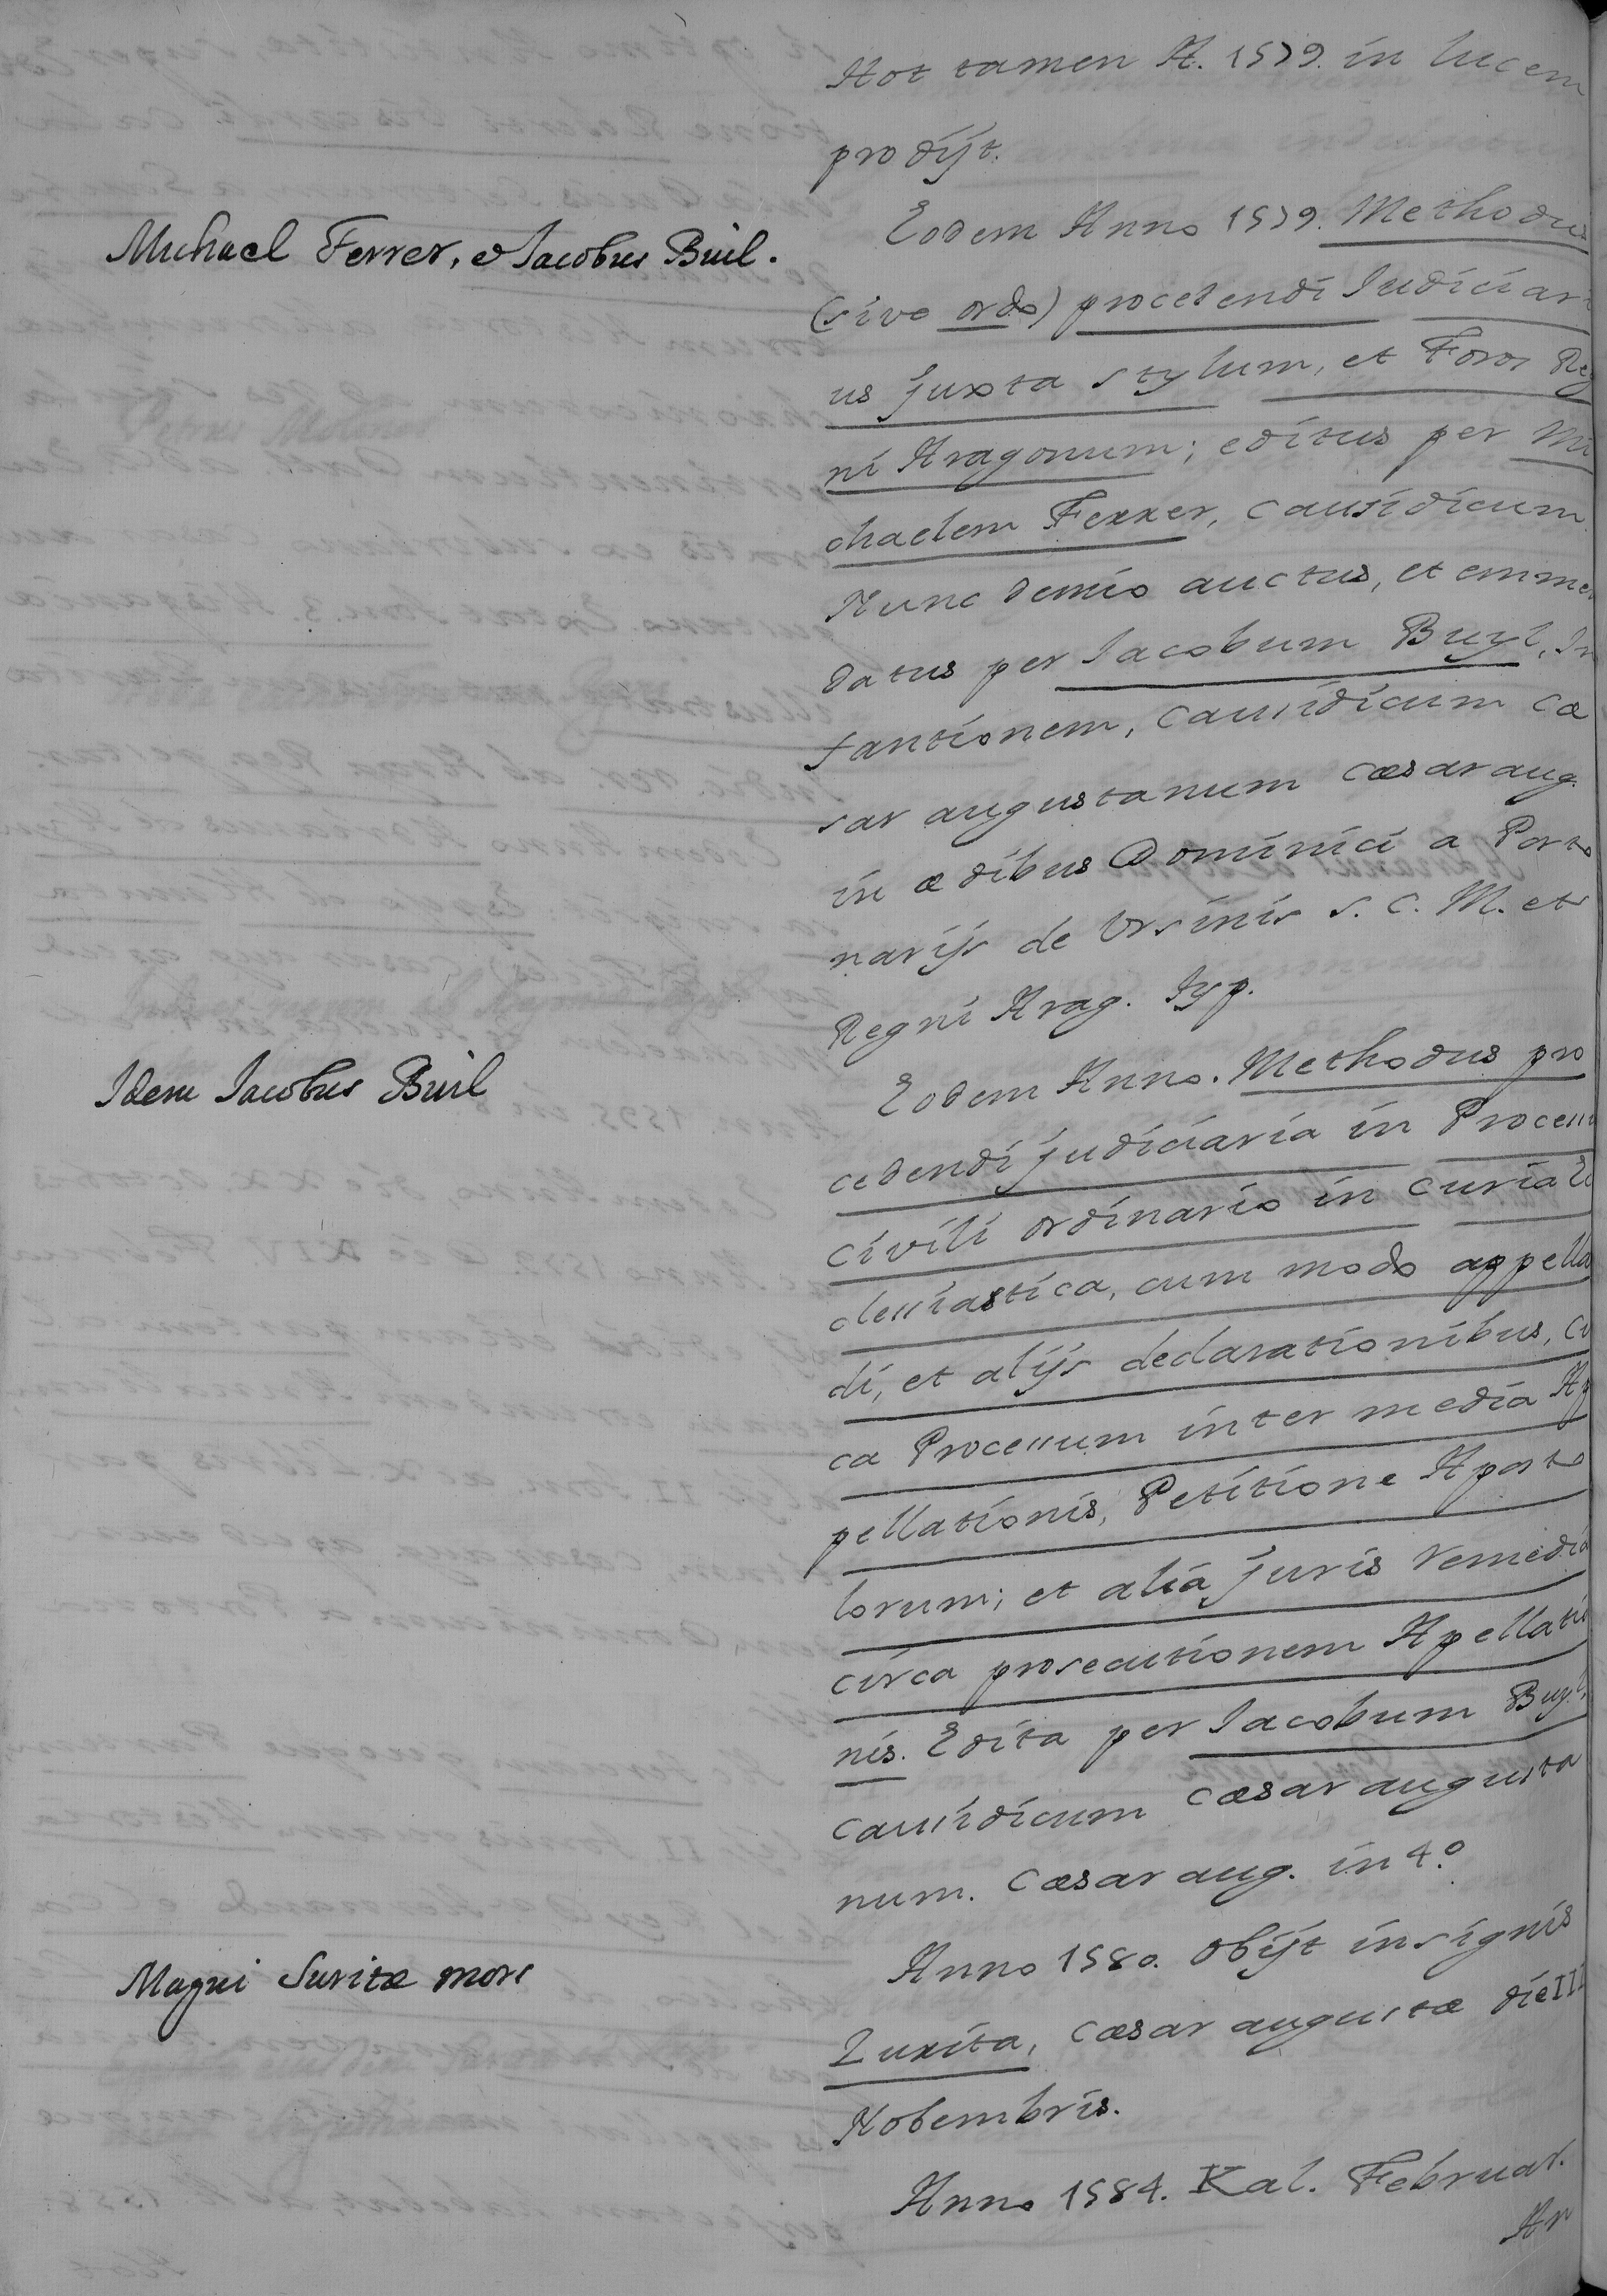 Hot tamen A. 1579. in lucem
prodijt.
Michael Ferrer, & Iacobus Buil.
Eodem Anno 1579. Methodus
(sive ordo) procedendi Iudiciari
us juxta stylum, et Foros Reg
ni Aragonum; editus per Mi
chaelem Ferrer, causidicum.
Nunc denuo auctus, et emmen
datus per Iacobum Buyl, In
fantionem, causidicum Cæ
sar augustanum Cæsar aug.
in ædibus Dominici a Porto
narijs de Ursinis S. C. M. et
Regni Arag. Typ.
Idem Iacobus Buil
Eodem Anno. Methodus pro
cedendi judiciaria in Processu
civili ordinario in curia Ec
clessiastica, cum modo appellan
di, et alijs declarationibus, cir
ca Processum inter media Ap
pellationis, Petitione Aposto
lorum; et alia juris remedia
circa prosecutionem Apellatio
nis. Edita per Iacobum Buyl,
caussidicum Cæsar augusta
num. Cæsar aug. in 4.º
Magni Suritæ mors
Anno 1580. obijt insignis
Zurita, Cæsar augustæ die III
Nobembris.
Anno 1584. Kal. Februar.
An